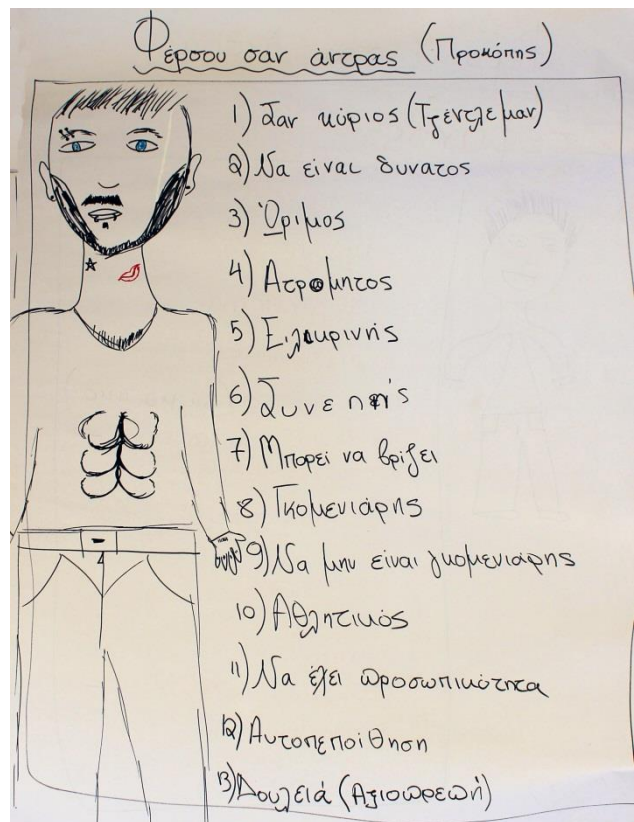 Φέρσου σαν άντρας (Προκόπης)
1) Σαν κύριος (Τζέντλεμαν)
2) Να είναι δυνατος
3) Ώριμος
4) Ατρομητος
5) Ειλικρινής
6) Συνεπής
7) Μπορεί να βρίζει
8) Γκομενιάρης
9) Να μην είναι γκομενιαρης
10) Αθλητικός
11) Να έχει προσωπικότητα
12) Αυτοπεποίθηση
13) Δουλειά (Αξιοπρεπή)